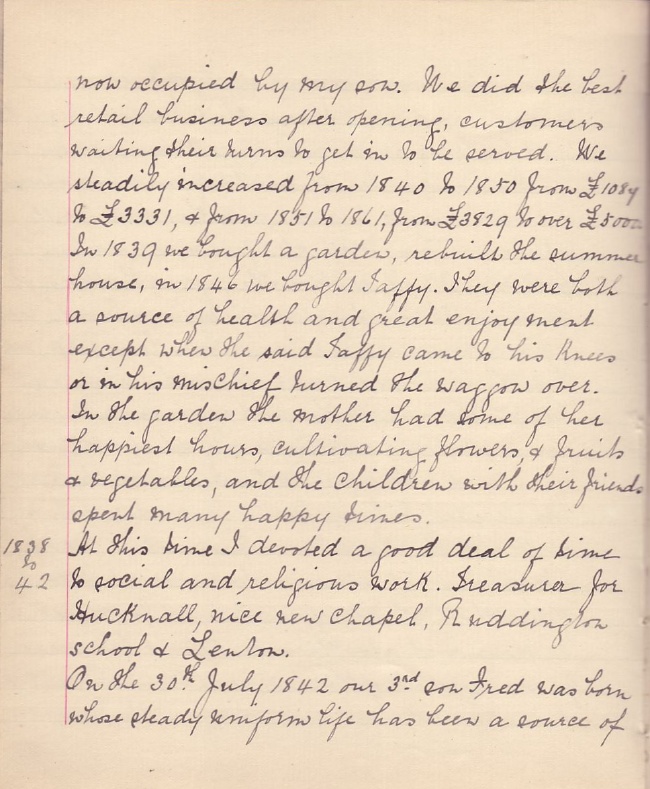 now occupied by my son. We did the best
retail business after opening, customers
waiting their turns to get in to be served. We
steadily increased from 1840 to 1850 from £1084
to £3331, & from 1851 to 1861, from £3829 to over £5000
In 1839 we bought a garden, rebuilt the summer
house, in 1846 we bought Taffy. They were both
a source of health and great enjoyment
except when the said Taffy came to his knees
or in his mischief turned the waggon over.
In the garden the mother had some of her
happiest hours, cultivating flowers, & fruits
& vegetables, and the children with their friends
spent many happy times.
1838 to 42
At this time I devoted a good deal of time
to social and religious work. Treasurer for
Hucknall, nice new chapel, Ruddington
school & Lenton.
On the 30th July 1842 our 3rd son Fred was born
whose steady uniform life has been a source of